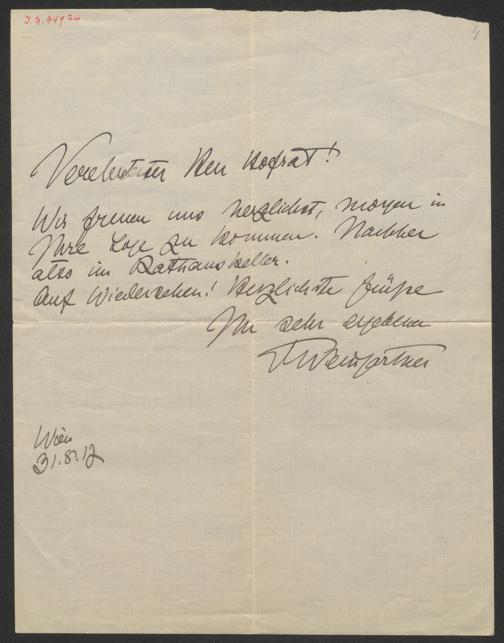 I.N. 74924
4
Verehrtester Herr Hofrat!
Wir freuen uns herzlichst, morgen in
Ihre Loge zu kommen. Nachher
also im Rathauskeller.
Auf Wiedersehen! Herzlichste Grüße
Ihr sehr ergebener
FWeingartner
Wien
31.8.17